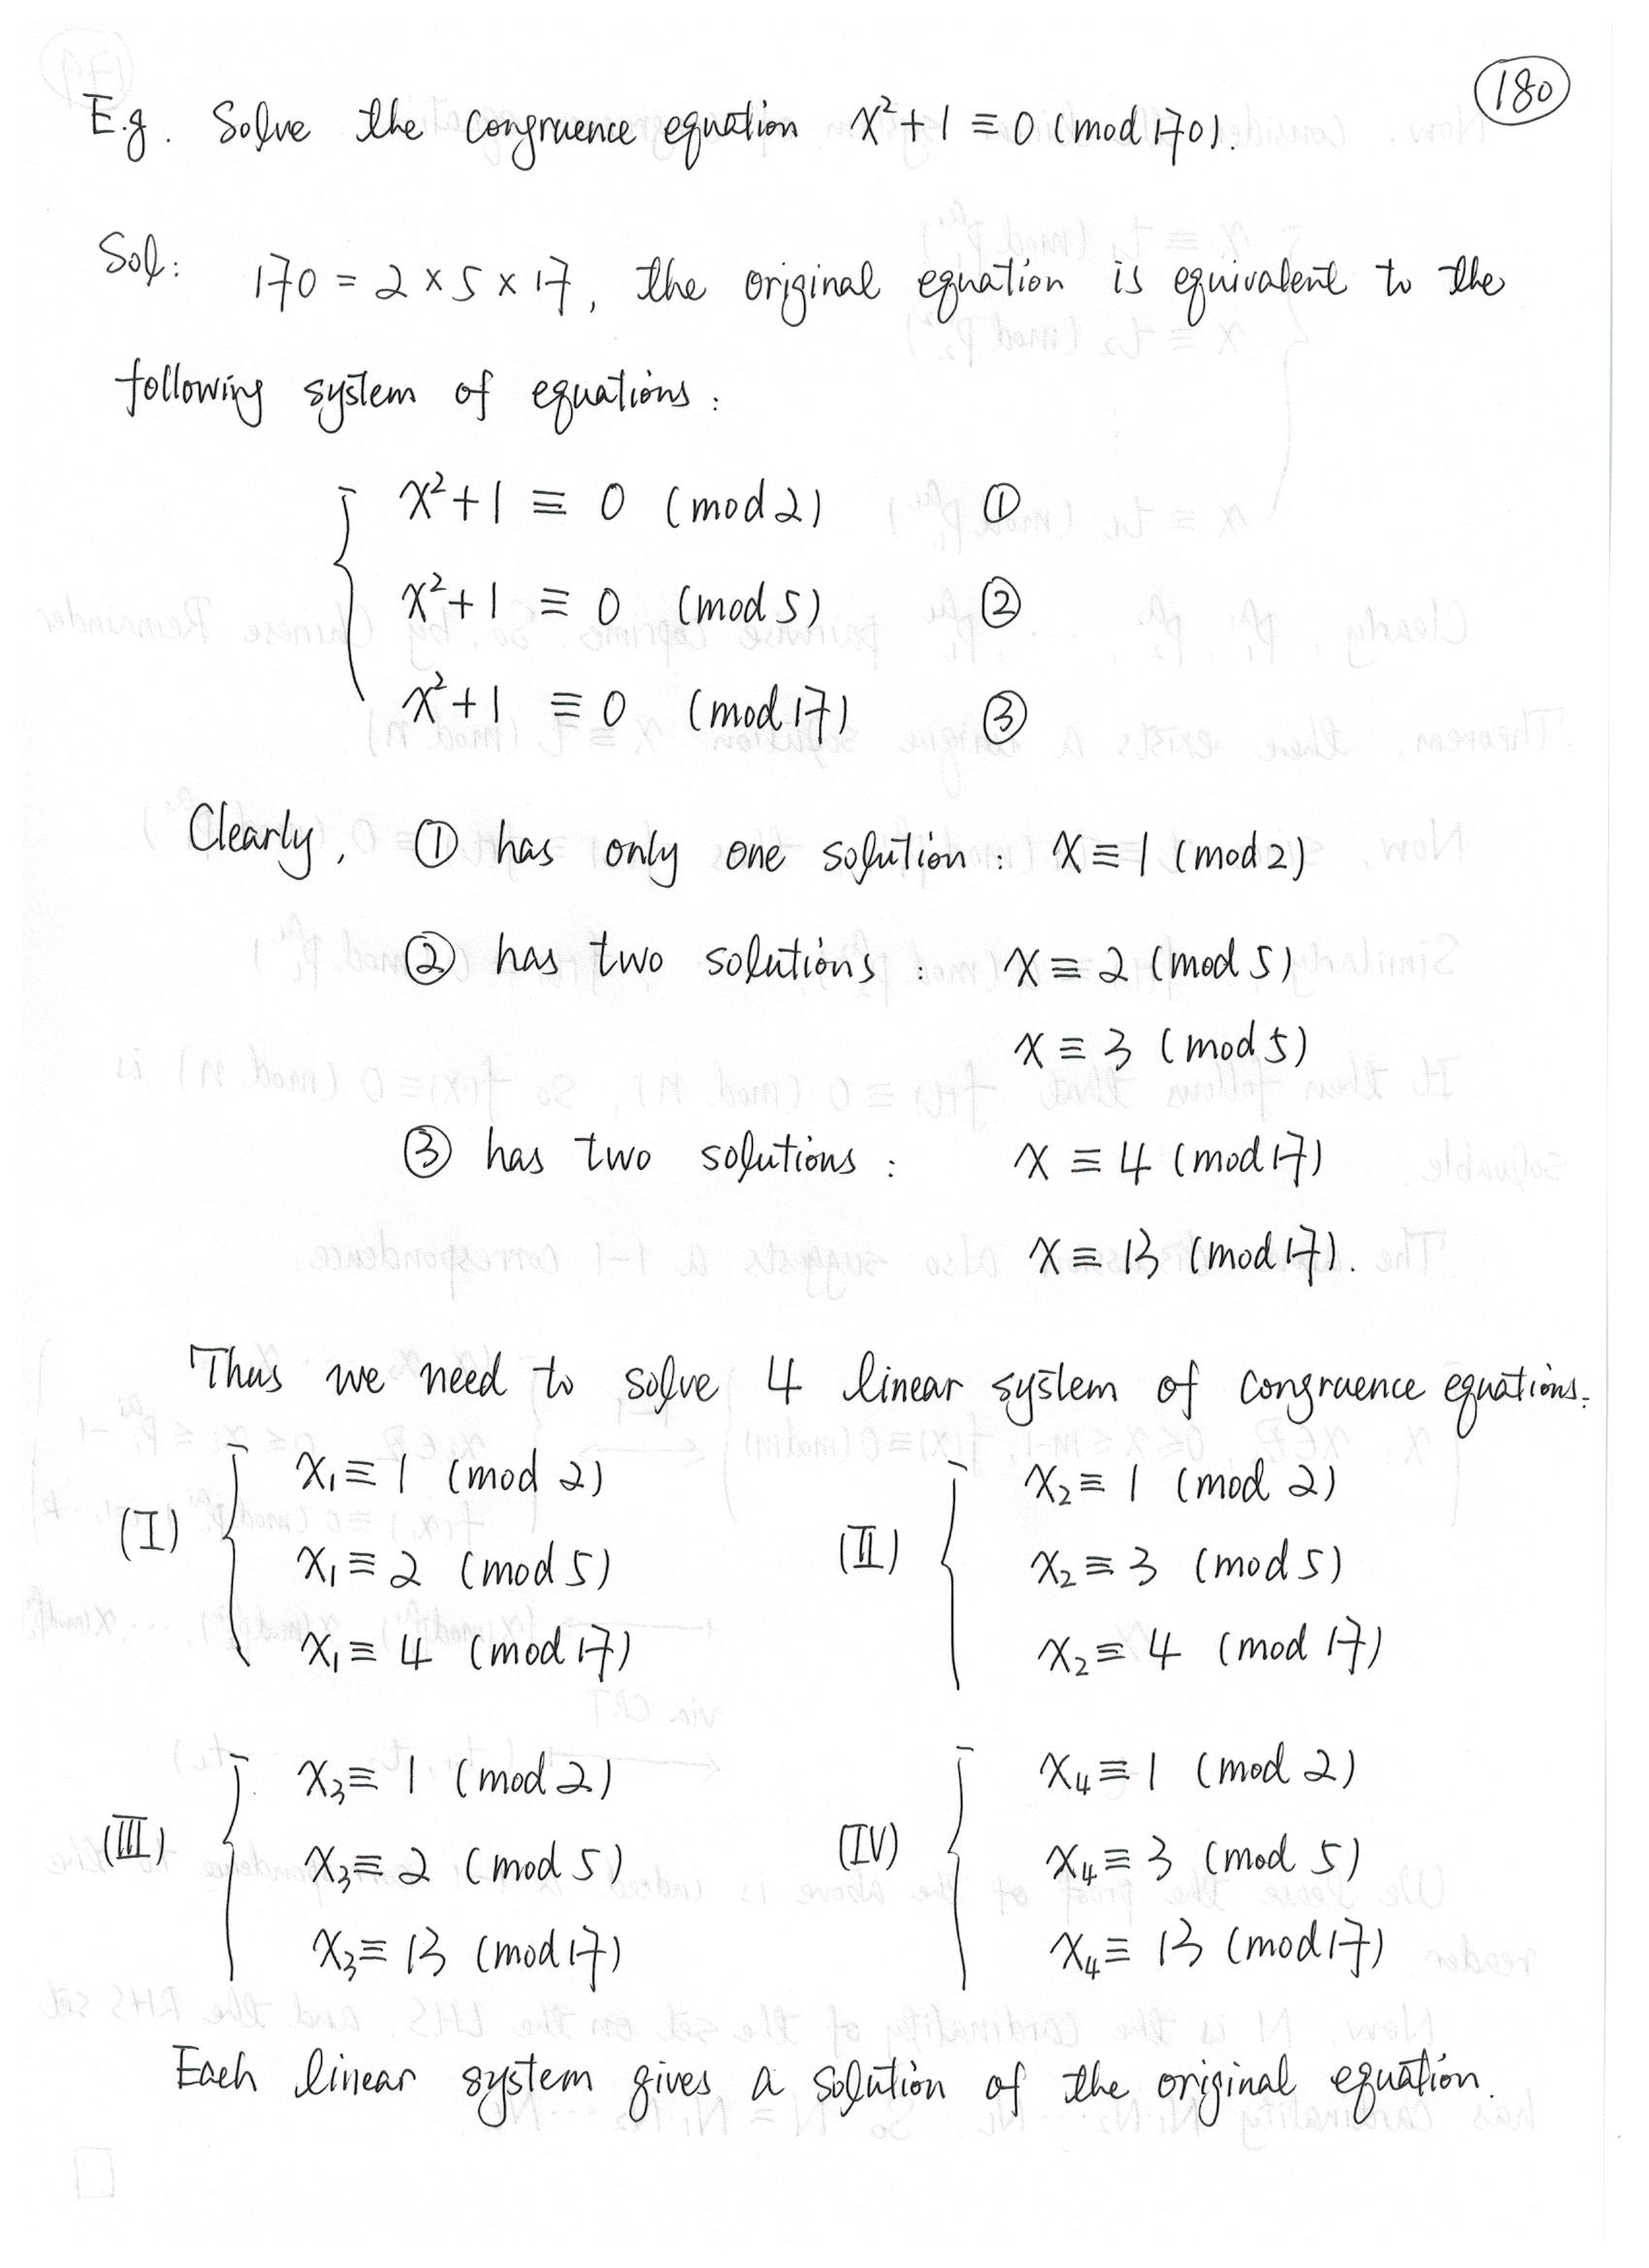 180
E.g. Solve the congruence equation x²+1 ≡ 0 (mod 170).
Sol: 170 = 2 × 5 × 17, the original equation is equivalent to the
following system of equations:
x²+1 ≡ 0 (mod 2) ①
x²+1 ≡ 0 (mod 5) ②
x²+1 ≡ 0 (mod 17) ③
Clearly, ① has only one solution: x ≡ 1 (mod 2)
② has two solutions: x ≡ 2 (mod 5)
x ≡ 3 (mod 5)
③ has two solutions: x ≡ 4 (mod 17)
x ≡ 13 (mod 17).
Thus we need to solve 4 linear system of congruence equations.
(I) x₁ ≡ 1 (mod 2)
x₁ ≡ 2 (mod 5)
x₁ ≡ 4 (mod 17)
(II) x₂ ≡ 1 (mod 2)
x₂ ≡ 3 (mod 5)
x₂ ≡ 4 (mod 17)
(III) x₃ ≡ 1 (mod 2)
x₃ ≡ 2 (mod 5)
x₃ ≡ 13 (mod 17)
(IV) x₄ ≡ 1 (mod 2)
x₄ ≡ 3 (mod 5)
x₄ ≡ 13 (mod 17)
Each linear system gives a solution of the original equation.